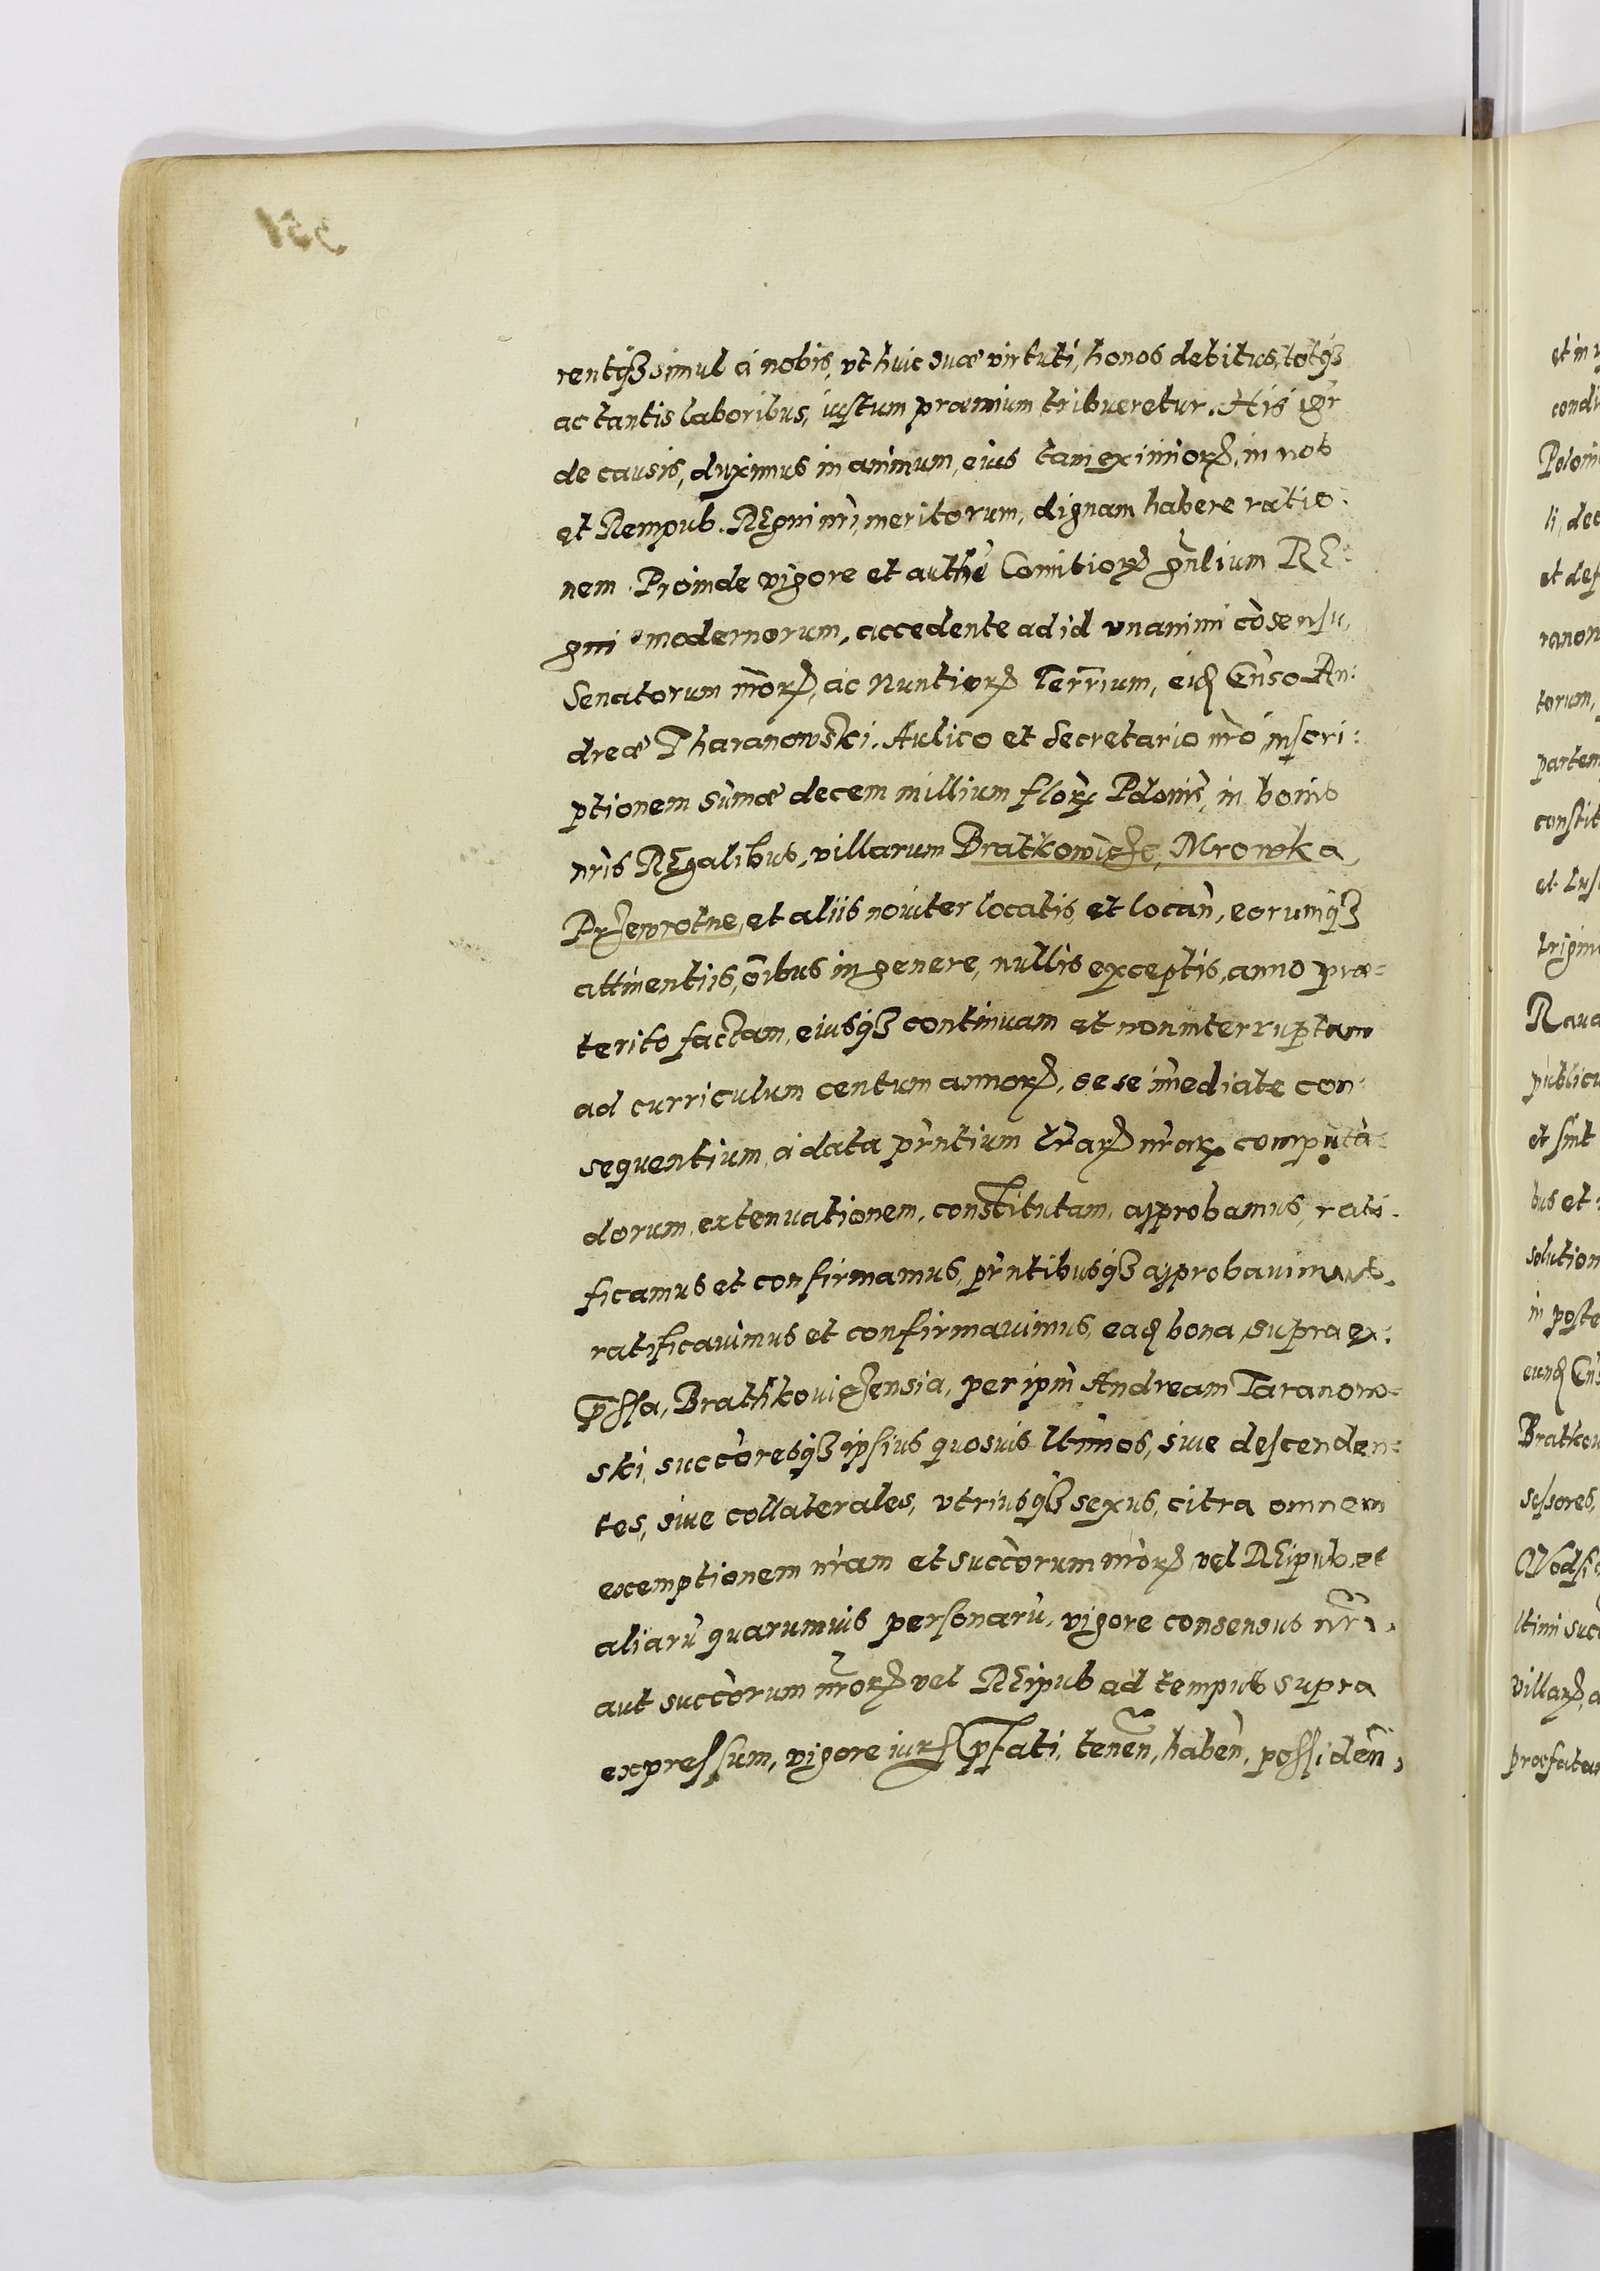 rentq₃ simul à nobis, vt huic suæ virtuti, honos debitus, totq₃
ac tantis laboribus, iustum præmium tribueretur. His igr̃
de causis, duximus in animum, eius tam eximiorꝝ, in nos
et Rempub. Regni nr̃i, meritorum, dignam habere ratio:
nem. Proinde vigore et authẽ Comitiorꝝ gñlium Re:
gni modernorum, accedente ad id vnanimi cõsensu,
Senatorum nr̃orꝝ, ac Nuntiorꝝ Terr̃ium, eid Gñso An:
dreæ Tharanowski. Aulico et Secretario nr̃o, inscri:
ptionem sũmæ decem millium flor̃ Poloniẽ, in bonis
nr̃is Regalibus, villarum Bratkowicze, Mrowka,
Przewrotne, et aliis noviter locatis, et locañ, eorumq₃
attinentiis, õibus in genere, nullis exceptis, anno præ:
terito factam, eiusq₃ continuam et noninterruptam
ad curriculum centum annorꝝ, sese im̃ediate con:
sequentium, à data pr̃ntium lr̃arꝝ nr̃arꝝ computã:
dorum, extenuationem, constitutam, approbamus, rati:
ficamus et confirmamus, pr̃ntibusq₃ approbavimus,
ratificavimus et confirmavimus, ead bona, supra ex:
p̃ssa, Brathkoviczensia, per ipm̃ Andream Taranow:
ski, succ̃oresq₃ ipsius quosvis lt̃imos, siue descenden:
tes, siue collaterales, vtriusq₃ sexus, citra omnem
exemptionem nr̃am et succ̃orum nr̃orꝝ, vel Reipub. et
aliarũ quarumvis personarũ, vigore consensus nr̃i,
aut succ̃orum nr̃orꝝ vel Reipub ad tempus supra
expressum, vigore iuris p̃fati, teneñ, habeñ, possideñ,
et in
condi
li, dec
et def
ranow
torum,
partem
constit
trigin
Rava
publicu
et sint
bus et
solution
in poste
eund Gñs
Bratkow
sessores,
lt̃imi succ
villarꝝ, a
præfatam
351